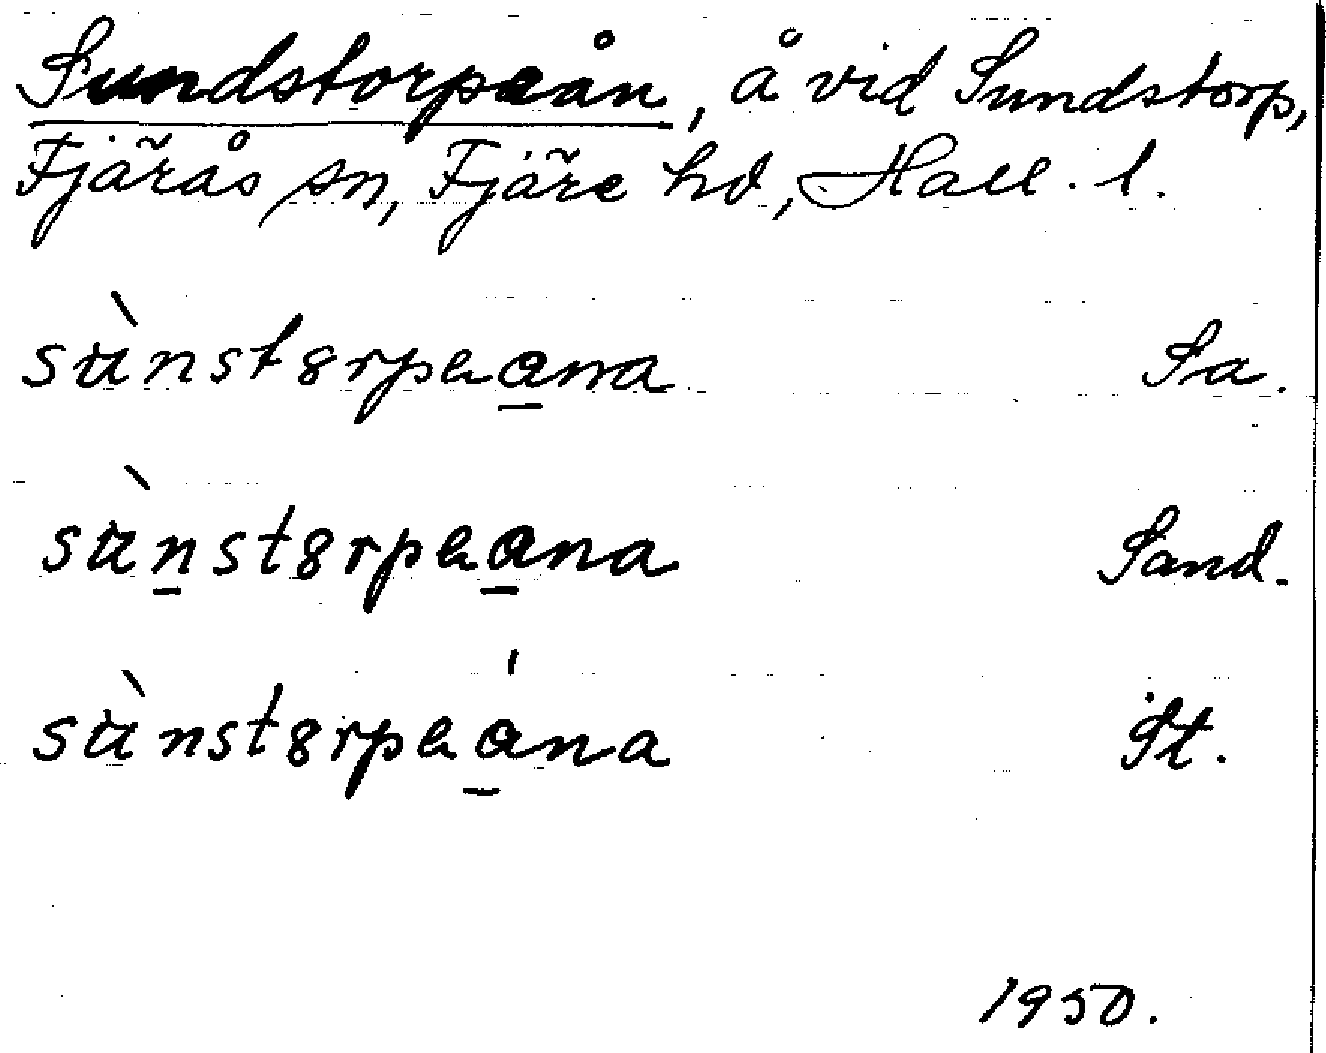 Sundstorpaån, å vid Sundstorp,
Fjärås sn, Fjäre hd, Hall. l.
sùnst8rpaa̲na Sa.
sùn̲st8rpaa̲na Sand.
sùnst8rpaá̲na St.
1950.